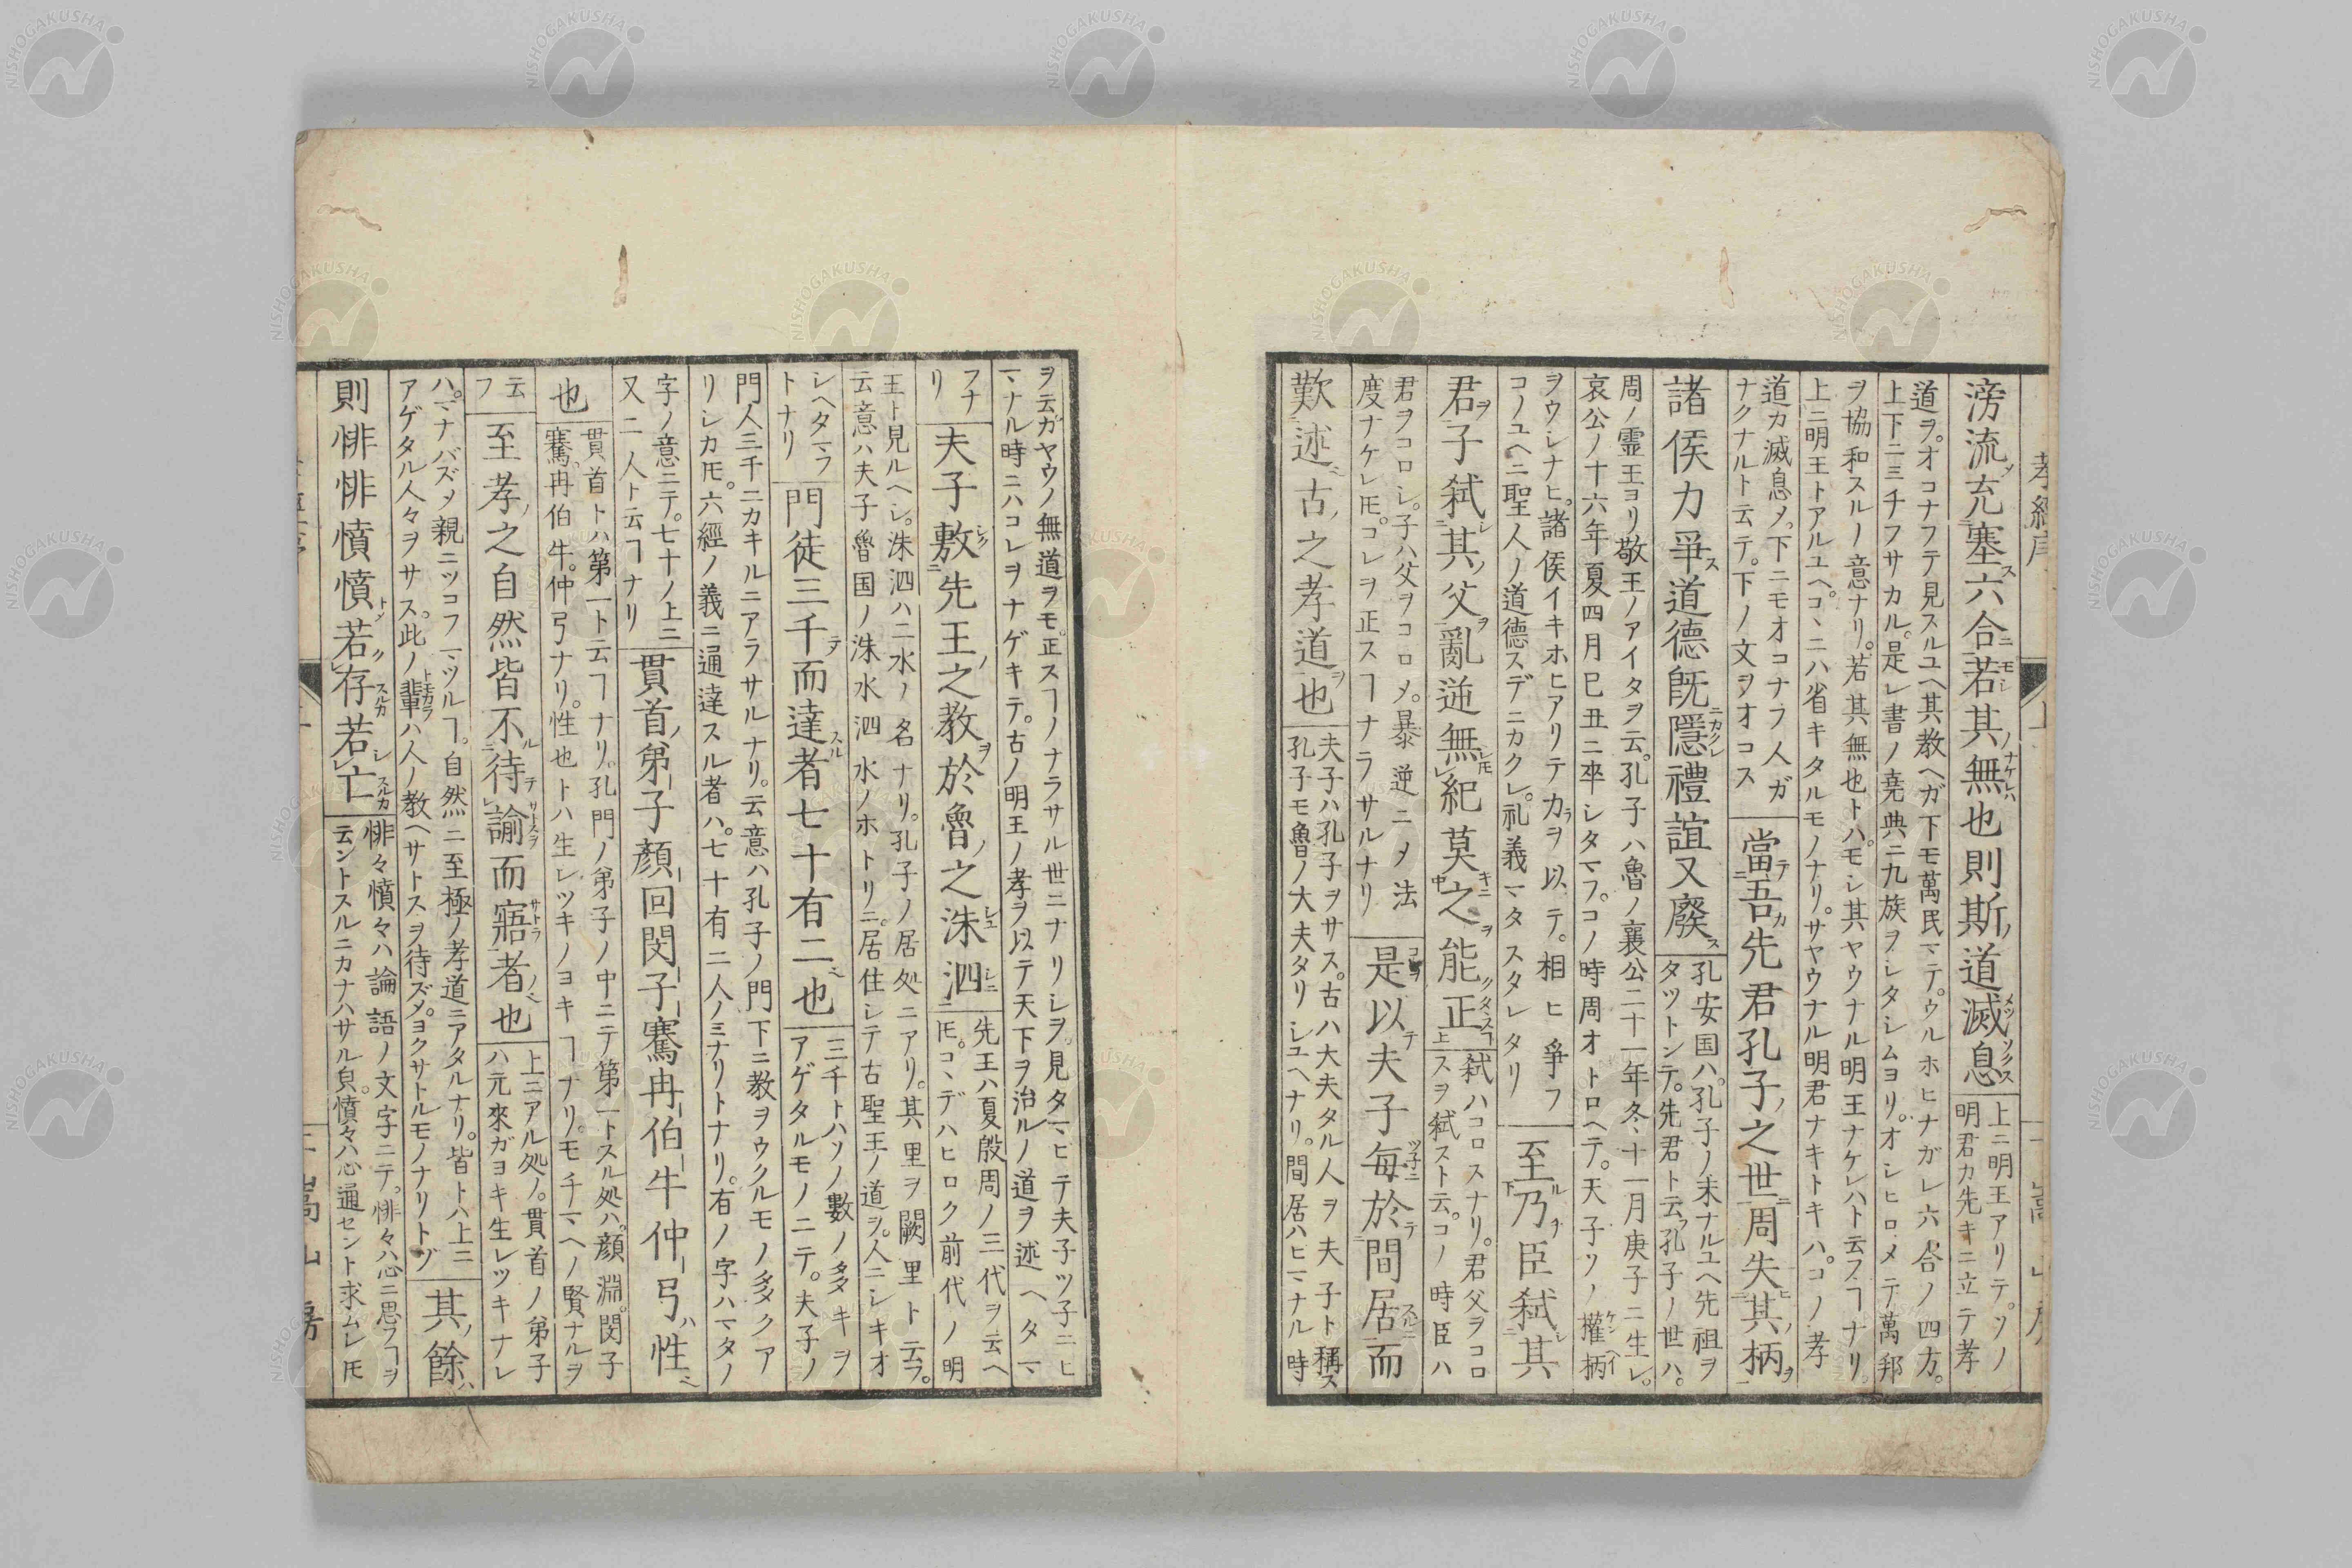 滂流充塞六合若其無也則斯道滅息
上ニ明王アリテソノ
明君カ先キニ立テ孝
道ヲオコナフテ見スルユヘ其教ヘガ下モ萬民マテウルホヒナガレ六合ノ四方
上下ニミチフサカル是レ書ノ堯典ニ九族ヲシタシムヨリオシヒロメテ萬邦
ヲ協和スルノ意ナリ若其無也トハモシ其ヤウナル明王ナケレハト云フヿナリ
上ニ明王トアルユヘコヽニハ省キタルモノナリサヤウナル明君ナキトキハコノ孝
道カ滅息メ下ニモオコナフ人ガ
ナクナルト云テ下ノ文ヲオコス
當吾先君孔子之世周失其柄
諸侯力爭道德既隱禮誼又廢
孔安国ハ孔子ノ末ナルユヘ先祖ヲ
タツトンテ先君ト云フ孔子ノ世ハ
周ノ霊王ヨリ敬王ノアイタヲ云孔子ハ魯ノ襄公二十一年冬十一月庚子ニ生レ
哀公ノ十六年夏四月巳丑ニ卒シタマフコノ時周オトロヘテ天子ソノ權柄
ヲウシナヒ諸侯イキホヒアリテカラヲ以テ相ヒ爭フ
コノユヘニ聖人ノ道德スデニカクレ礼義マタスタレタリ
至乃臣弑其
君子弑其父亂逆無紀莫之能正
弑ハコロスナリ君父ヲコロ
スヲ弑スト云コノ時臣ハ
君ヲコロシ子ハ父ヲコロメ暴逆ニメ法
度ナケレ𪜈コレヲ正スヿナラサルナリ
是以夫子每於間居而
歎述古之孝道也
夫子ハ孔子ヲサス古ハ大夫タル人ヲ夫子ト稱ス
孔子モ魯ノ大夫タリシユヘナリ間居ハヒマナル時
ヲ云ガヤウノ無道ヲモ正スヿノナラサル世ニナリシヲ見タマヒテ夫子ツ子ニヒ
マナル時ニハコレヲナゲキテ古ノ明王ノ孝ヲ以テ天下ヲ治ルノ道ヲ述ヘタマ
フナ
リ
夫子敷先王之教於魯之洙泗
先王ハ夏殷周ノ三代ヲ云ヘ
𪜈コヽデハヒロク前代ノ明
王ト見ルヘシ洙泗ハ二水ノ名ナリ孔子ノ居処ニアリ其里ヲ闕里ト云フ
云意ハ夫子魯国ノ洙水泗水ノホトリニ居住シテ古聖王ノ道ヲ人ニシキオ
シヘタマフ
トナリ
門徒三千而達者七十有二也
三千トハソノ數ノ多キヲ
アゲタルモノニテ夫子ノ
門人三千ニカキルニアラサルナリ云意ハ孔子ノ門下ニ教ヲウクルモノ多クア
リシカ𪜈六經ノ義ニ通達スル者ハ七十有二人ノミナリトナリ有ノ字ハマタノ
字ノ意ニテ七十ノ上ニ
又二人ト云ヿナリ
貫首弟子顏回閔子騫冉伯牛仲弓性
也
貫首トハ第一ト云ヿナリ孔門ノ弟子ノ中ニテ第一トスル処ハ顔淵閔子
騫冉伯牛仲弓ナリ性也トハ生レツキノヨキヿナリモチマヘノ賢ナルヲ
云
フ
至孝之自然皆不待諭而寤者也
上ニアル処ノ貫首ノ弟子
ハ元來ガヨキ生レツキナレ
ハマナバズメ親ニツコフマツルヿ自然ニ至極ノ孝道ニアタルナリ皆トハ上ニ
アゲタル人々ヲサス此ノ輩ハ人ノ教ヘサトスヲ待ズメヨクサトルモノナリトゾ
其餘
則悱悱憤憤若存若亡
悱々憤々ハ論語ノ文字ニテ悱々ハ心ニ思フヿヲ
云ントスルニカナハサル皃憤々ハ心通セント求ムレ𪜈